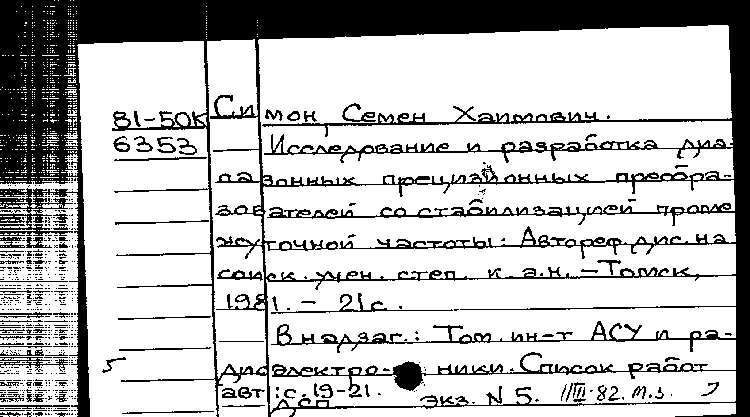 81-50К Симон, Семен Хаимович.
6353 Исследование и разработка диа-
пазонных прецизионных преобра-
зователей со стабилизацией проме
жуточной частоты: Автореф. дис. на
соиск. учен. степ. к. а.н. – Томск,
1981. – 21 с.
В надзаг.: Том. ин-т АСУ и ра-
диоэлектро- ники. Список работ
5
авт.: с. 19-21.
Деп экз. N 5. 11/III-82. м.з.